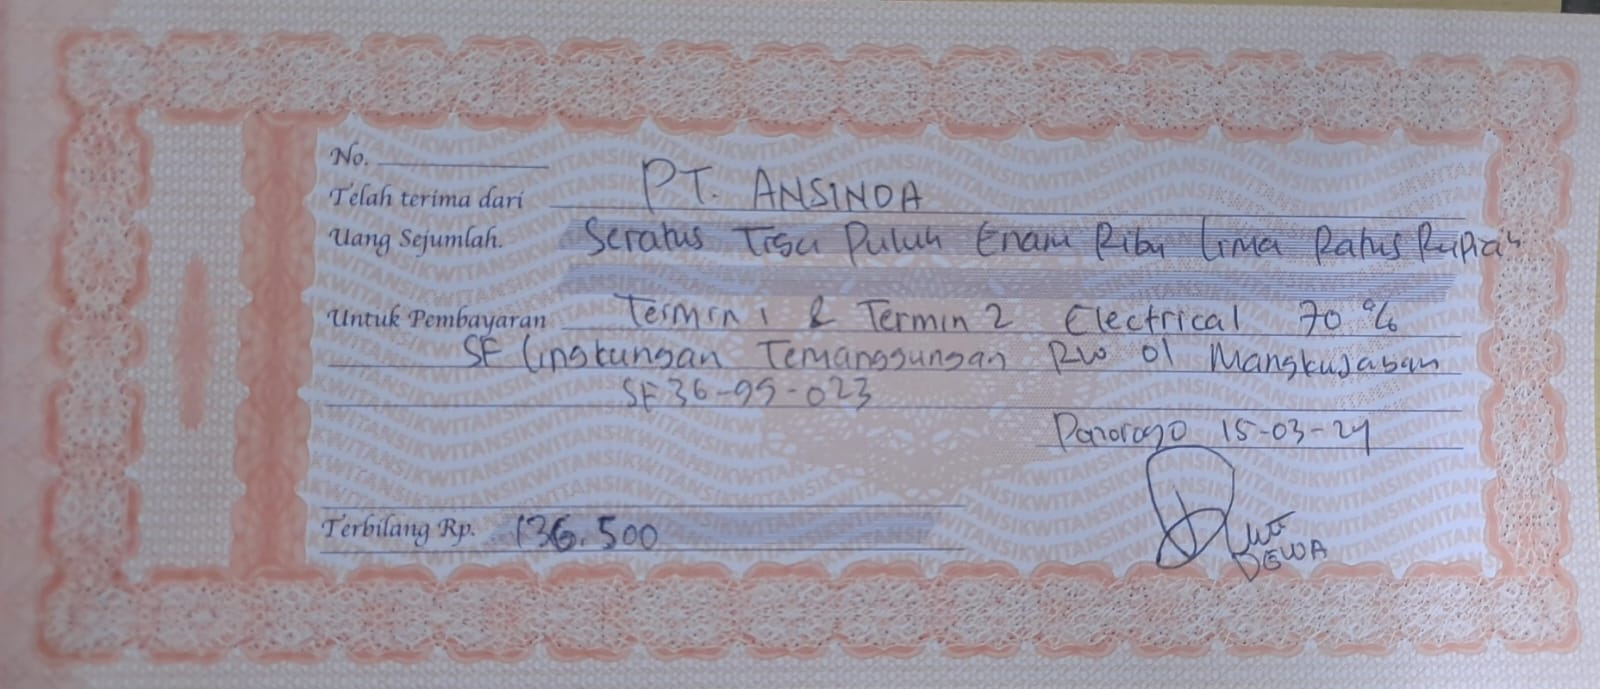 No.
Telah terima dari PT. ANSINDA
Uang Sejumlah. Seratus Tiga Puluh Enam Ribu Lima Ratus Rupiah
Untuk Pembayaran Termin 1 & Termin 2 Electrical 70 %
SF Lingkungan Temanggungan RW 01 Mangkujayan
SF36-99-023
Ponorogo 15-03-24
Terbilang Rp. 136.500
DEWA